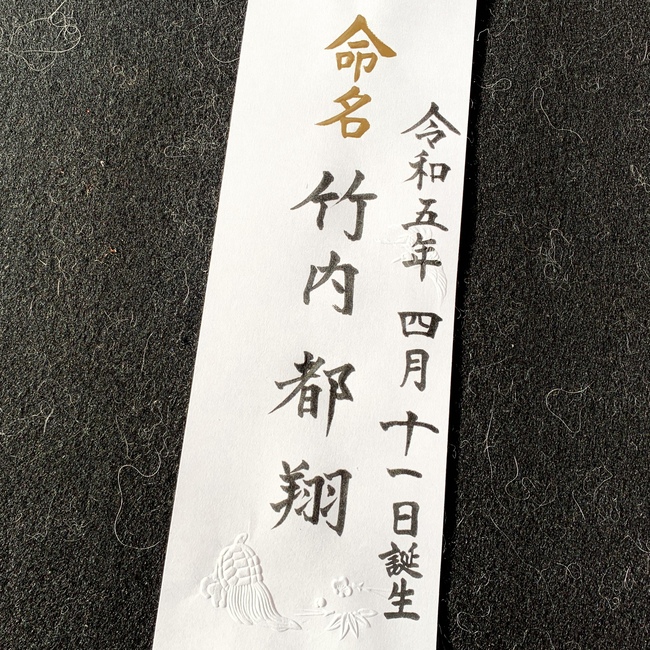 令和五年 四月十一日誕生
命名 竹内 都翔